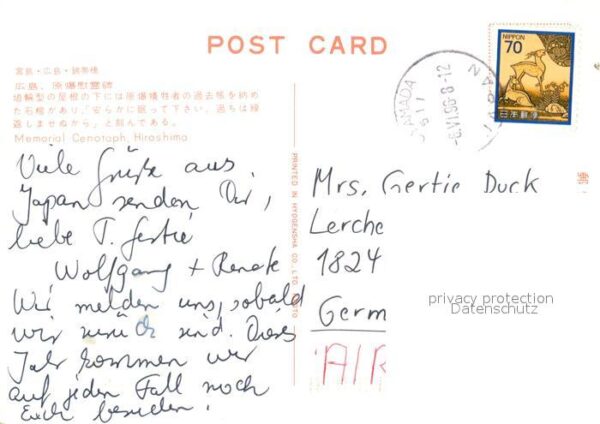 POST CARD
宮島・広島・錦帯橋
広島、原爆慰霊碑
埴輪型の屋根の下には原爆犠牲者の過去帳を納め
た石棺があり「安らかに眠って下さい。過ちは繰
返しませぬから」と刻んである。
Memorial Cenotaph, Hiroshima
Viele Grüße aus
Japan senden Dir,
liebe T. Gertie
Wolfgang + Renate
Wir melden uns, sobald
wir zurück sind. Dieses
Jahr kommen wir
auf jeden Fall noch
Euch besuchen!
PRINTED IN HYOGENSHA CO., LTD.
NIPPON
70
日本郵便
YAMADA
-6.VI.96 8-12
郵
Mrs. Gertie Duck
Lerche
1824
Germ
AIR
privacy protection
Datenschutz